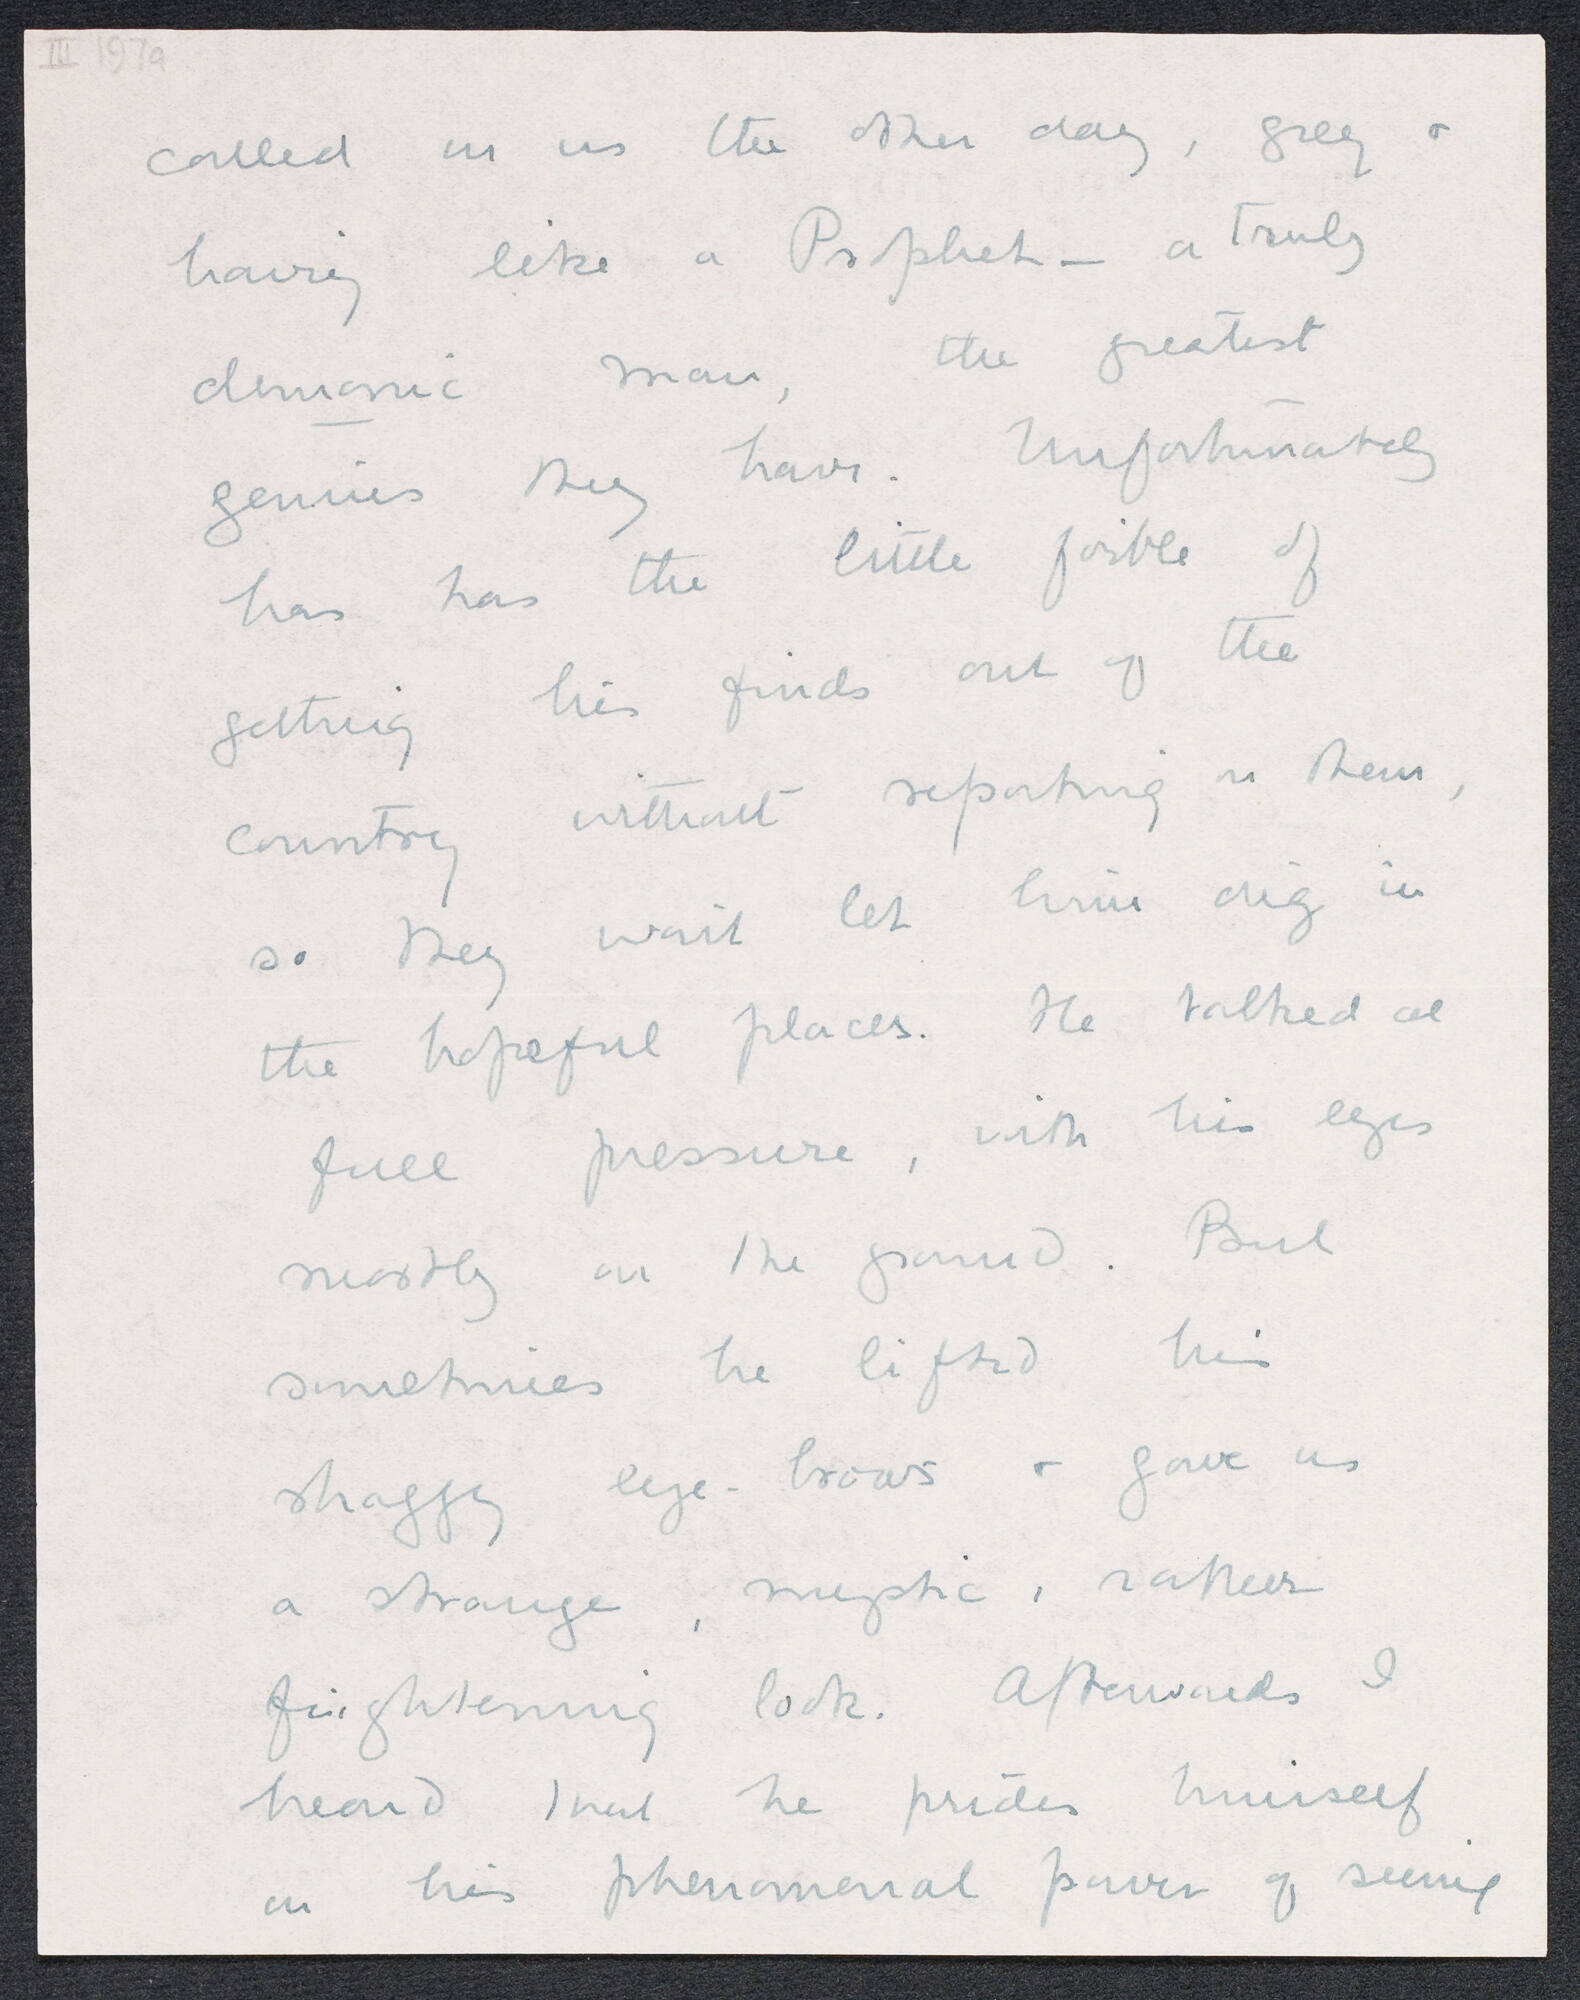 III 197a
called on us the other day, grey &
hairy like a Prophet — a truly
demonic man, the greatest
genius they have. Unfortunately
has has the little foible of
getting his finds out of the
country without reporting on them,
so they wont let him dig in
the hopeful places. He talked at
full pressure, with his eyes
mostly on the ground. But
sometimes he lifted his
shaggy eye-brows & gave us
a strange, mystic, rather
frightening look. Afterwards I
heard that he prides himself
on his phenomenal power of seeing